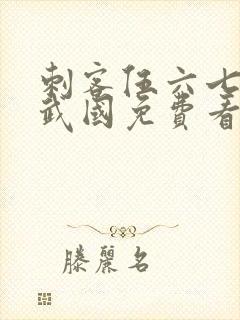 刺客伍六七
武國免費看
滕麗名